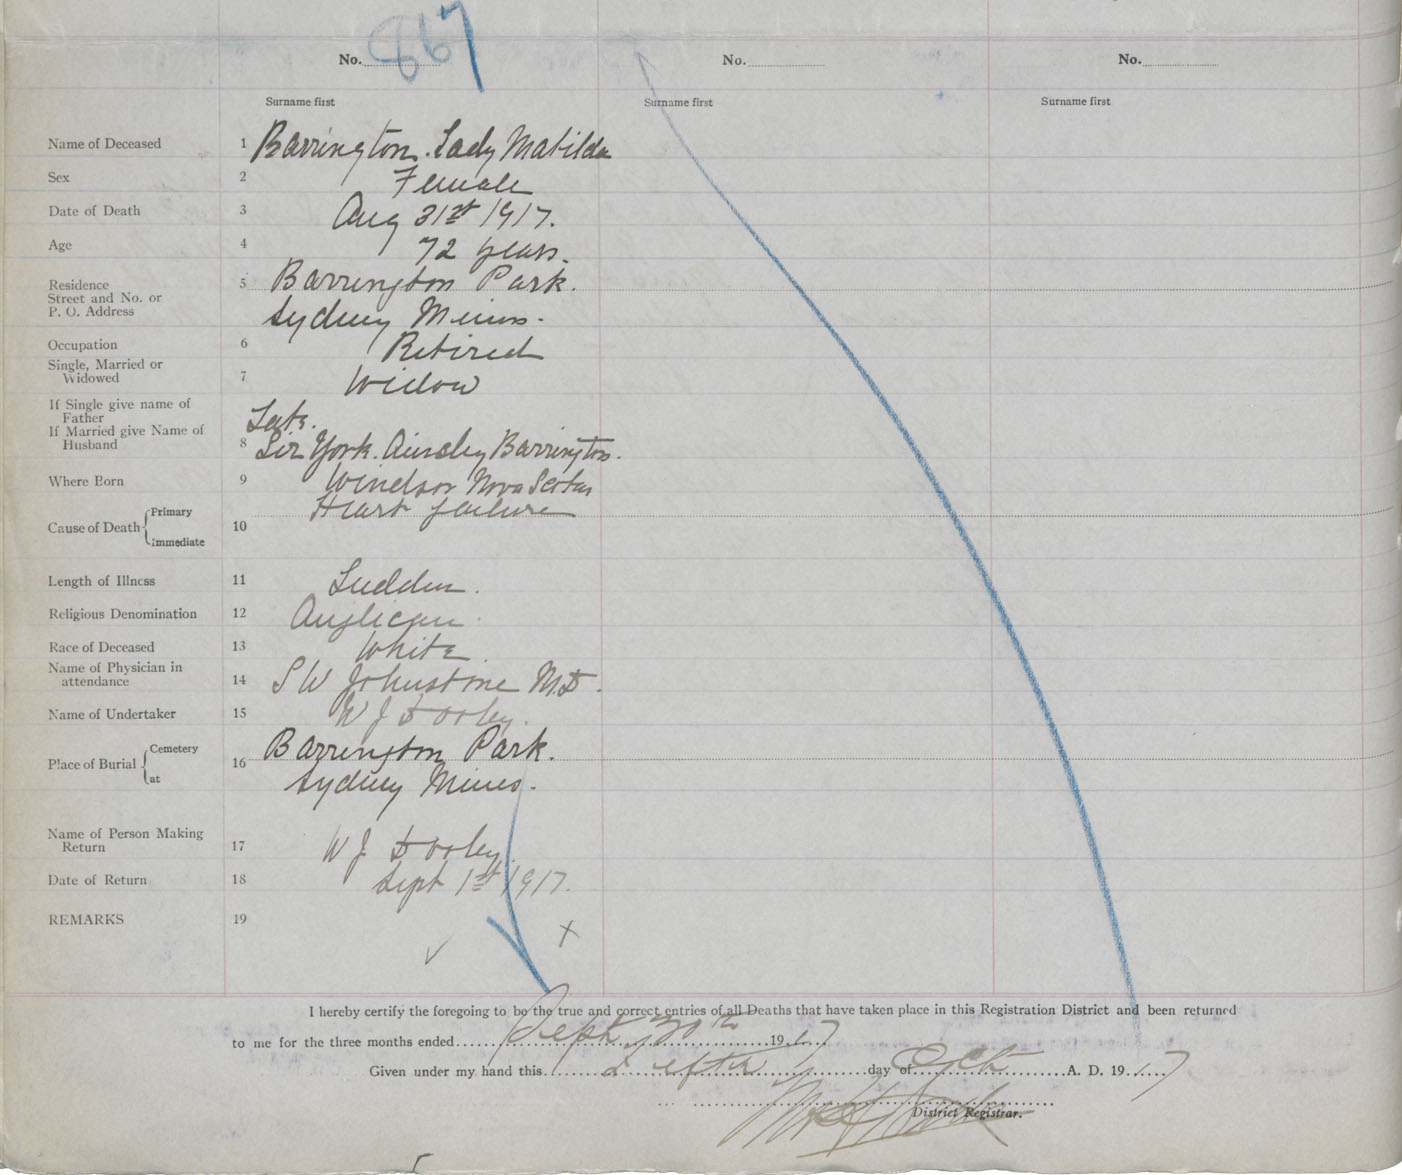 No. 867 No. No.
Surname first Surname first Surname first
Name of Deceased 1 Barrington. Lady Matilda
Sex 2 Female
Date of Death 3 Aug 31st 1917.
Age 4 72 years.
Residence 5 Barrington Park.
Street and No. or
P. O. Address Sydney Mines.
Occupation 6 Retired
Single, Married or
Widowed 7 Widow
If Single give name of
Father Late.
If Married give Name of
Husband 8 Sir York. Ainsley Barrington.
Where Born 9 Windsor Nova Scotia
Cause of Death 10 Primary Heart failure
Immediate
Length of Illness 11 Sudden.
Religious Denomination 12 Anglican.
Race of Deceased 13 White.
Name of Physician in
attendance 14 S W Johnstone M.D.
Name of Undertaker 15 W J Dooley.
Place of Burial 16 Cemetery Barrington Park.
at Sydney Mines.
Name of Person Making
Return 17 W J Dooley
Date of Return 18 Sept 1st 1917.
REMARKS 19
I hereby certify the foregoing to be the true and correct entries of all Deaths that have taken place in this Registration District and been returned
to me for the three months ended Sept 30th 1917
Given under my hand this day of Oct A. D. 1917
District Registrar.